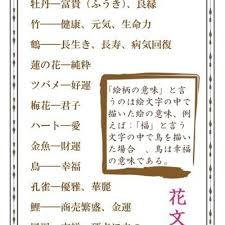 牡丹—富貴（ふうき）、良縁
竹—健康、元気、生命力
鶴—長生き、長寿、病気回復
蓮の花—純粋
ツバメ—好運
梅花—君子
ハート—愛
金魚—財運
鳥—幸福
孔雀—優雅、華麗
鯉—商売繁盛、金運
「絵柄の意味」と言
うのは絵文字の中で
描いた絵の意味、例
えば：「福」と言う
文字の中で鳥を描い
た場合　、鳥は幸福
の意味である。
花文